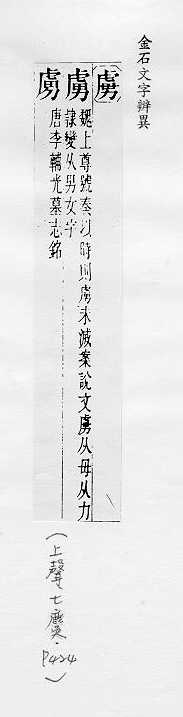 金石文字辨異
虜
虜魏上尊號奏以時則虜未滅案說文虜从母从力
隸變从男女字
虜唐李輔光墓志銘
(上聲七麌．P424)